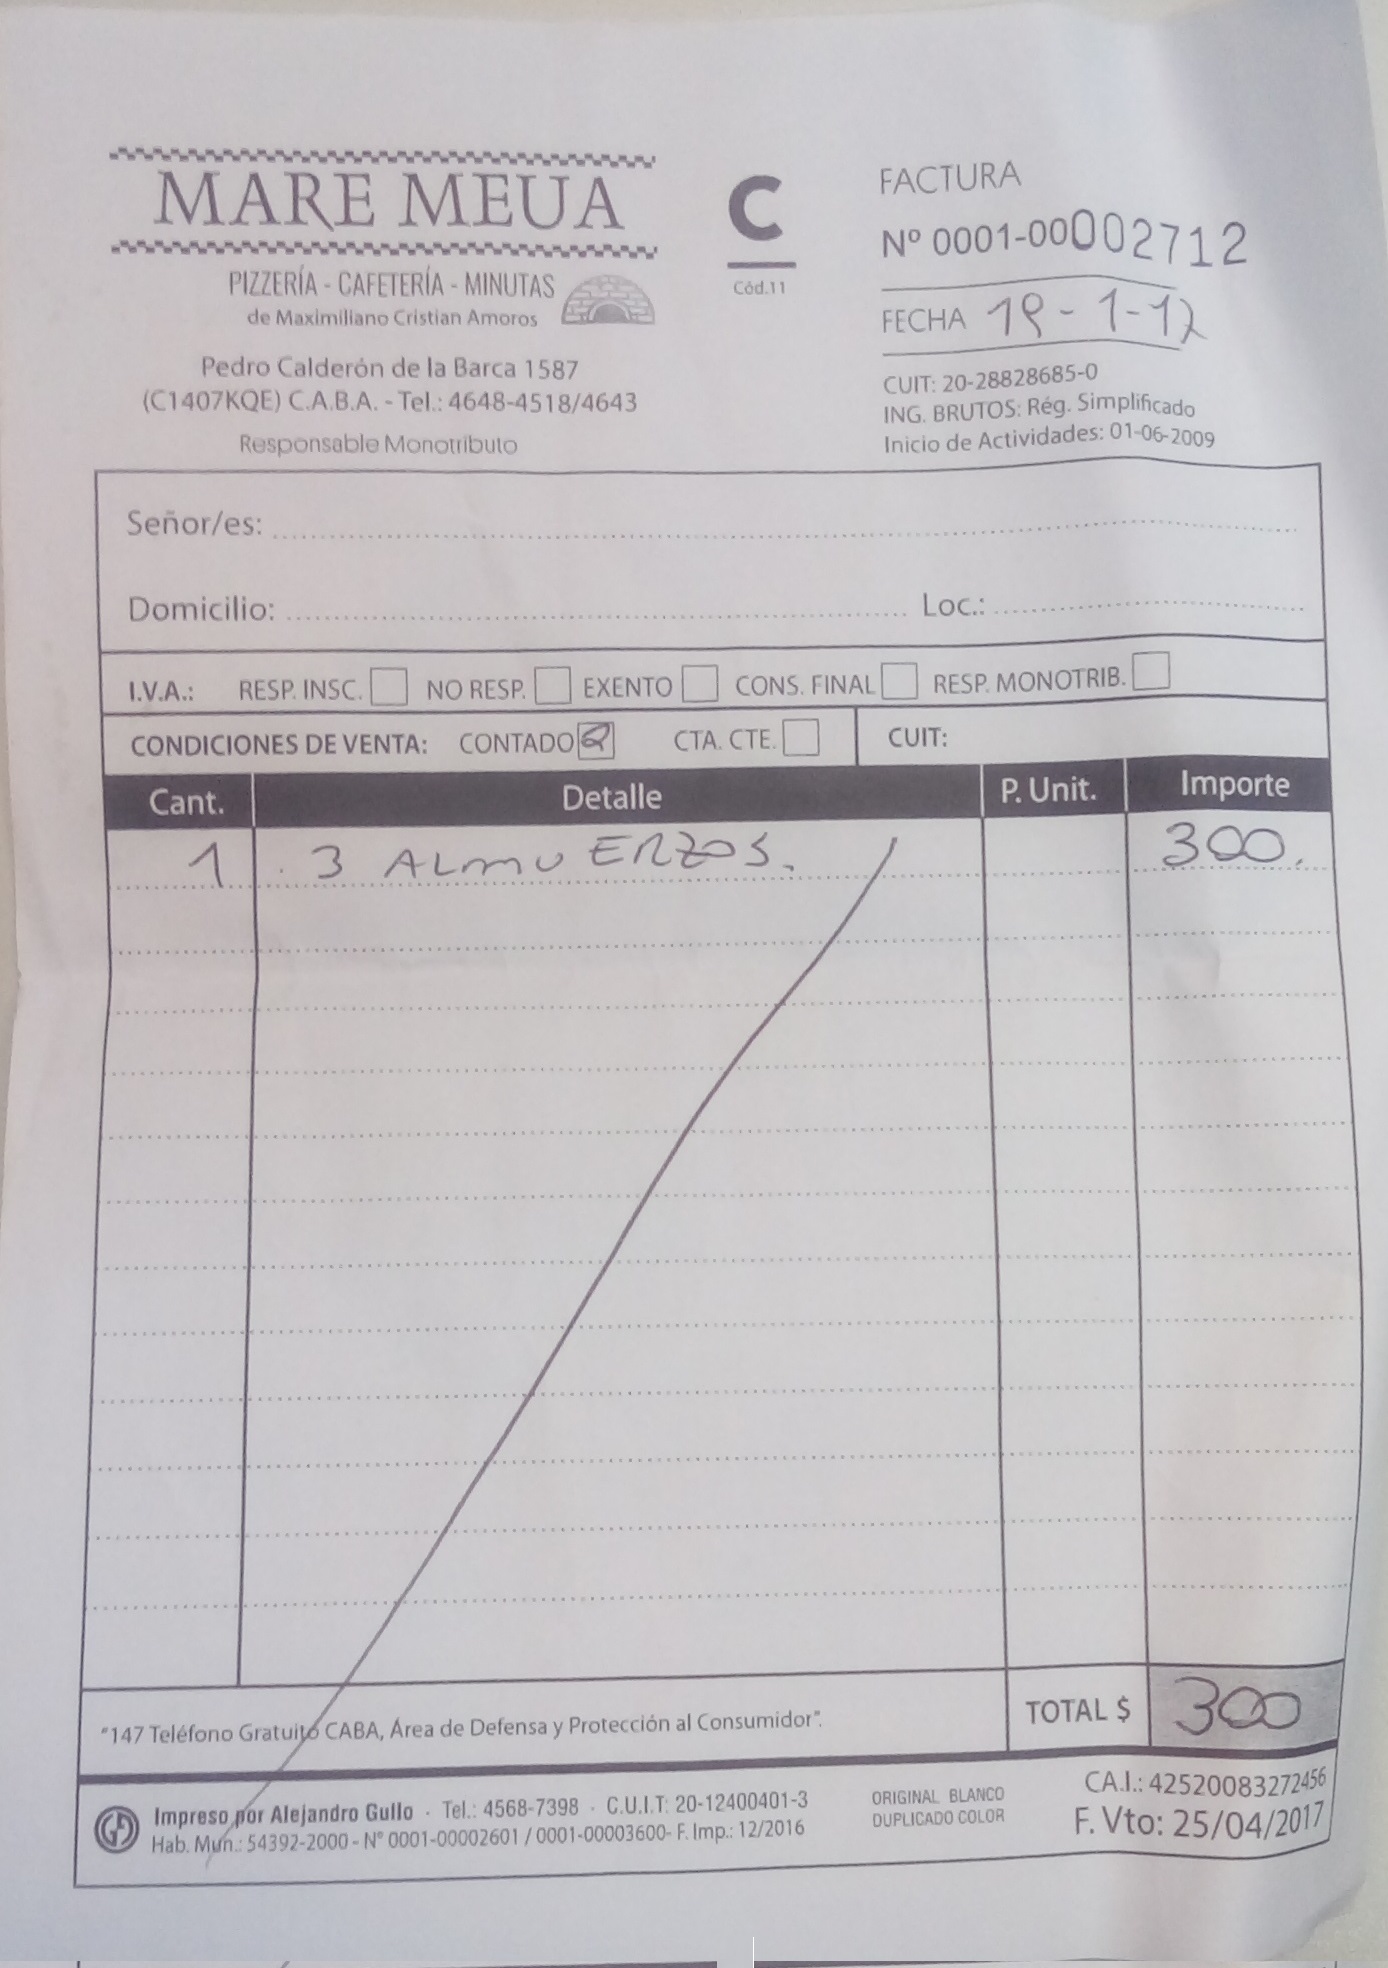 MARE MEUA
PIZZERÍA - CAFETERÍA - MINUTAS
de Maximiliano Cristian Amoros
Pedro Calderón de la Barca 1587
(C1407KQE) C.A.B.A. - Tel.: 4648-4518/4643
Responsable Monotributo
C
Cód.11
FACTURA
Nº 0001-00002712
FECHA 19-1-17
CUIT: 20-28828685-0
ING. BRUTOS: Rég. Simplificado
Inicio de Actividades: 01-06-2009
Señor/es:
Domicilio: Loc.:
I.V.A.: RESP. INSC. NO RESP. EXENTO CONS. FINAL RESP. MONOTRIB.
CONDICIONES DE VENTA: CONTADO CTA. CTE. CUIT:
Cant. Detalle P. Unit. Importe
1 3 ALMUERZOS. 300.
"147 Teléfono Gratuito CABA, Área de Defensa y Protección al Consumidor". TOTAL $ 300
Impreso por Alejandro Gullo · Tel.: 4568-7398 · C.U.I.T: 20-12400401-3
Hab. Mun.: 54392-2000 - N° 0001-00002601 / 0001-00003600- F. Imp.: 12/2016
ORIGINAL BLANCO
DUPLICADO COLOR
CA.I.: 42520083272456
F. Vto: 25/04/2017